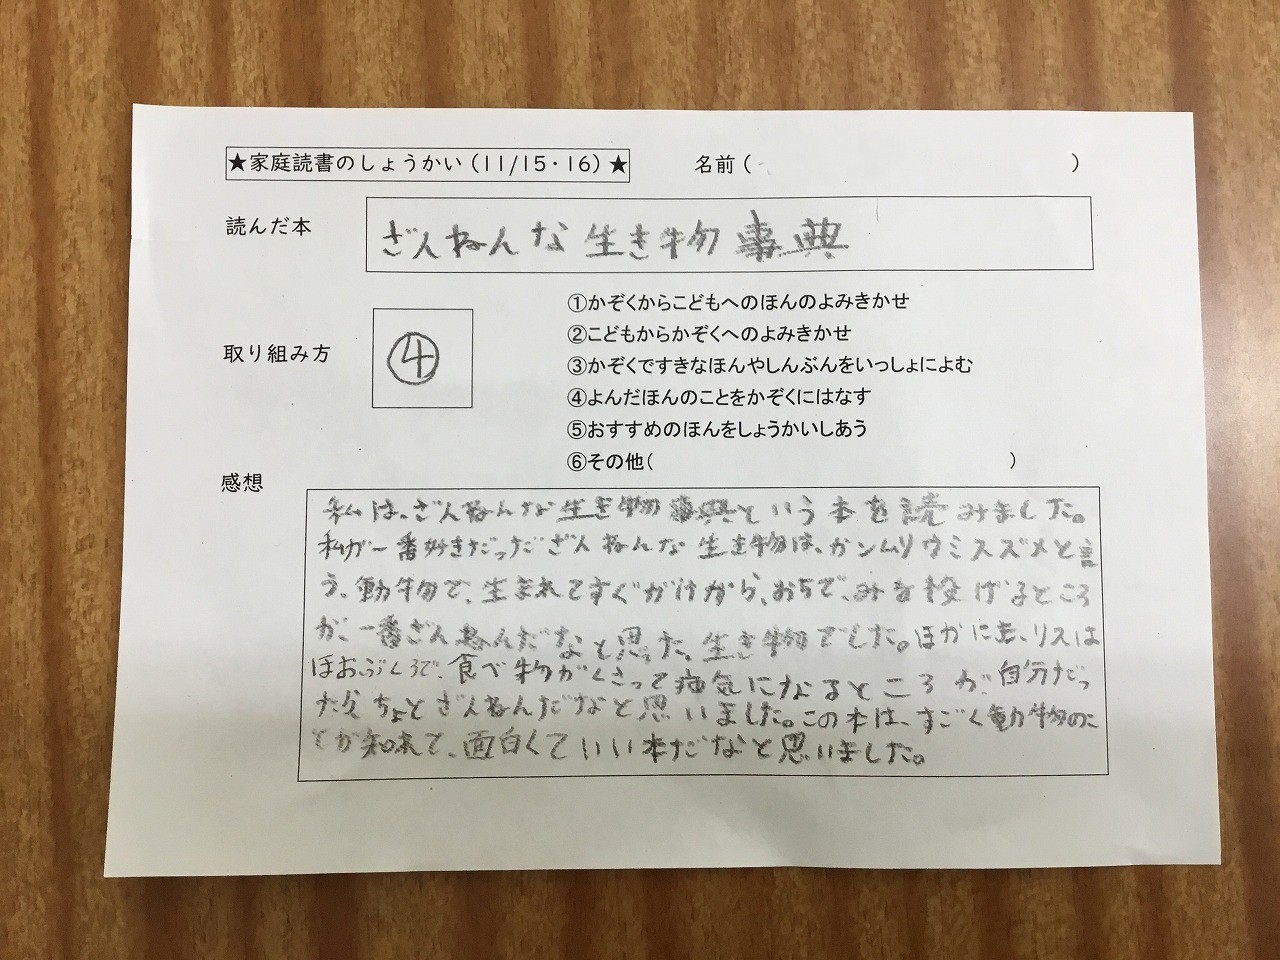 ★家庭読書のしょうかい(11/15・16)★ 名前( )
読んだ本 ざんねんな生き物事典
取り組み方 ④
①かぞくからこどもへのほんのよみきかせ
②こどもからかぞくへのよみきかせ
③かぞくですきなほんやしんぶんをいっしょによむ
④よんだほんのことをかぞくにはなす
⑤おすすめのほんをしょうかいしあう
⑥その他( )
感想
私は、ざんねんな生き物事典という本を読みました。
私が一番好きだっだざんねんな生き物は、カンムリウミスズメと言
う、動物で、生まれてすぐがけから、おちて、みを投げるところ
が、一番ざんねんだなと思った、生き物でした。ほかにも、リスは
ほおぶくろで、食べ物がくさって病気になるところが、自分だっ
たらちょとざんねんだなと思いました。この本は、すごく動物のこ
とが知れて、面白くていい本だなと思いました。